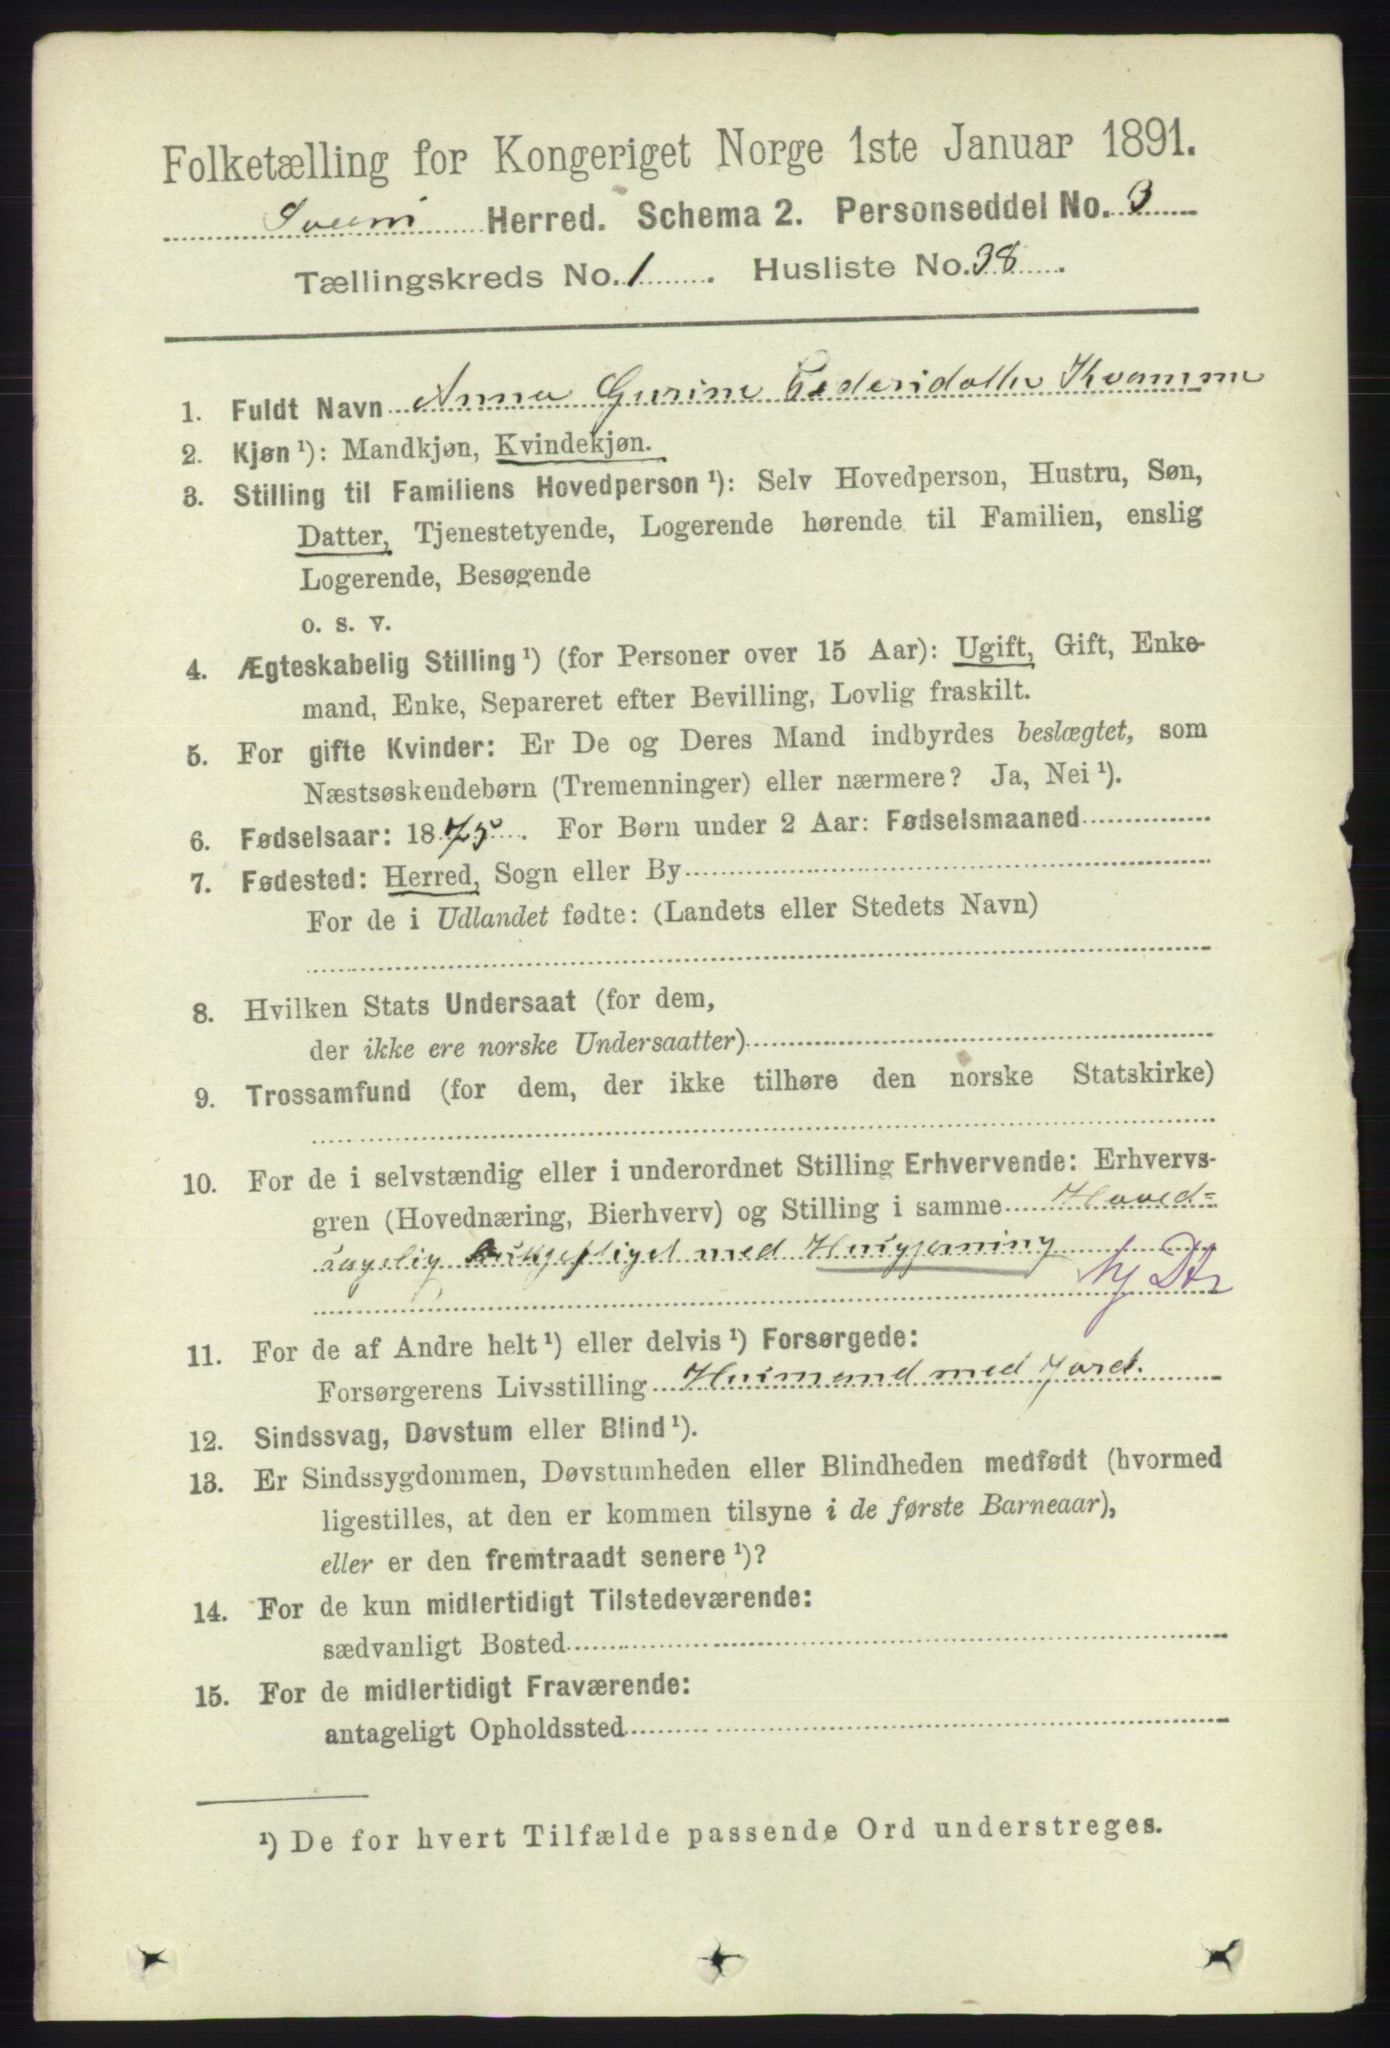 Folketælling for Kongeriget Norge 1ste Januar 1891.
Herred. Schema 2. Personseddel No. 3
Tællingskreds No. 1. Husliste No. 38.
1. Fuldt Navn Anna Gurine Pedersdatter Kvamme
2. Kjøn ¹): Mandkjøn, Kvindekjøn.
3. Stilling til Familiens Hovedperson ¹): Selv Hovedperson, Hustru, Søn,
Datter, Tjenestetyende, Logerende hørende til Familien, enslig
Logerende, Besøgende
o. s. v.
4. Ægteskabelig Stilling ¹) (for Personer over 15 Aar): Ugift, Gift, Enke-
mand, Enke, Separeret efter Bevilling, Lovlig fraskilt.
5. For gifte Kvinder: Er De og Deres Mand indbyrdes beslægtet, som
Næstsøskendebørn (Tremenninger) eller nærmere? Ja, Nei ¹).
6. Fødselsaar: 1875. For Børn under 2 Aar: Fødselsmaaned
7. Fødested: Herred, Sogn eller By
For de i Udlandet fødte: (Landets eller Stedets Navn)
8. Hvilken Stats Undersaat (for dem,
der ikke ere norske Undersaatter)
9. Trossamfund (for dem, der ikke tilhøre den norske Statskirke)
10. For de i selvstændig eller i underordnet Stilling Erhvervende: Erhvervs-
gren (Hovednæring, Bierhverv) og Stilling i samme Hoved=
sagelig med Husgjerning
11. For de af Andre helt ¹) eller delvis ¹) Forsørgede:
Forsørgerens Livsstilling Husmand med Jord.
12. Sindssvag, Døvstum eller Blind ¹).
13. Er Sindssygdommen, Døvstumheden eller Blindheden medfødt (hvormed
ligestilles, at den er kommen tilsyne i de første Barneaar),
eller er den fremtraadt senere ¹)?
14. For de kun midlertidigt Tilstedeværende:
sædvanligt Bosted
15. For de midlertidigt Fraværende:
antageligt Opholdssted
¹) De for hvert Tilfælde passende Ord understreges.